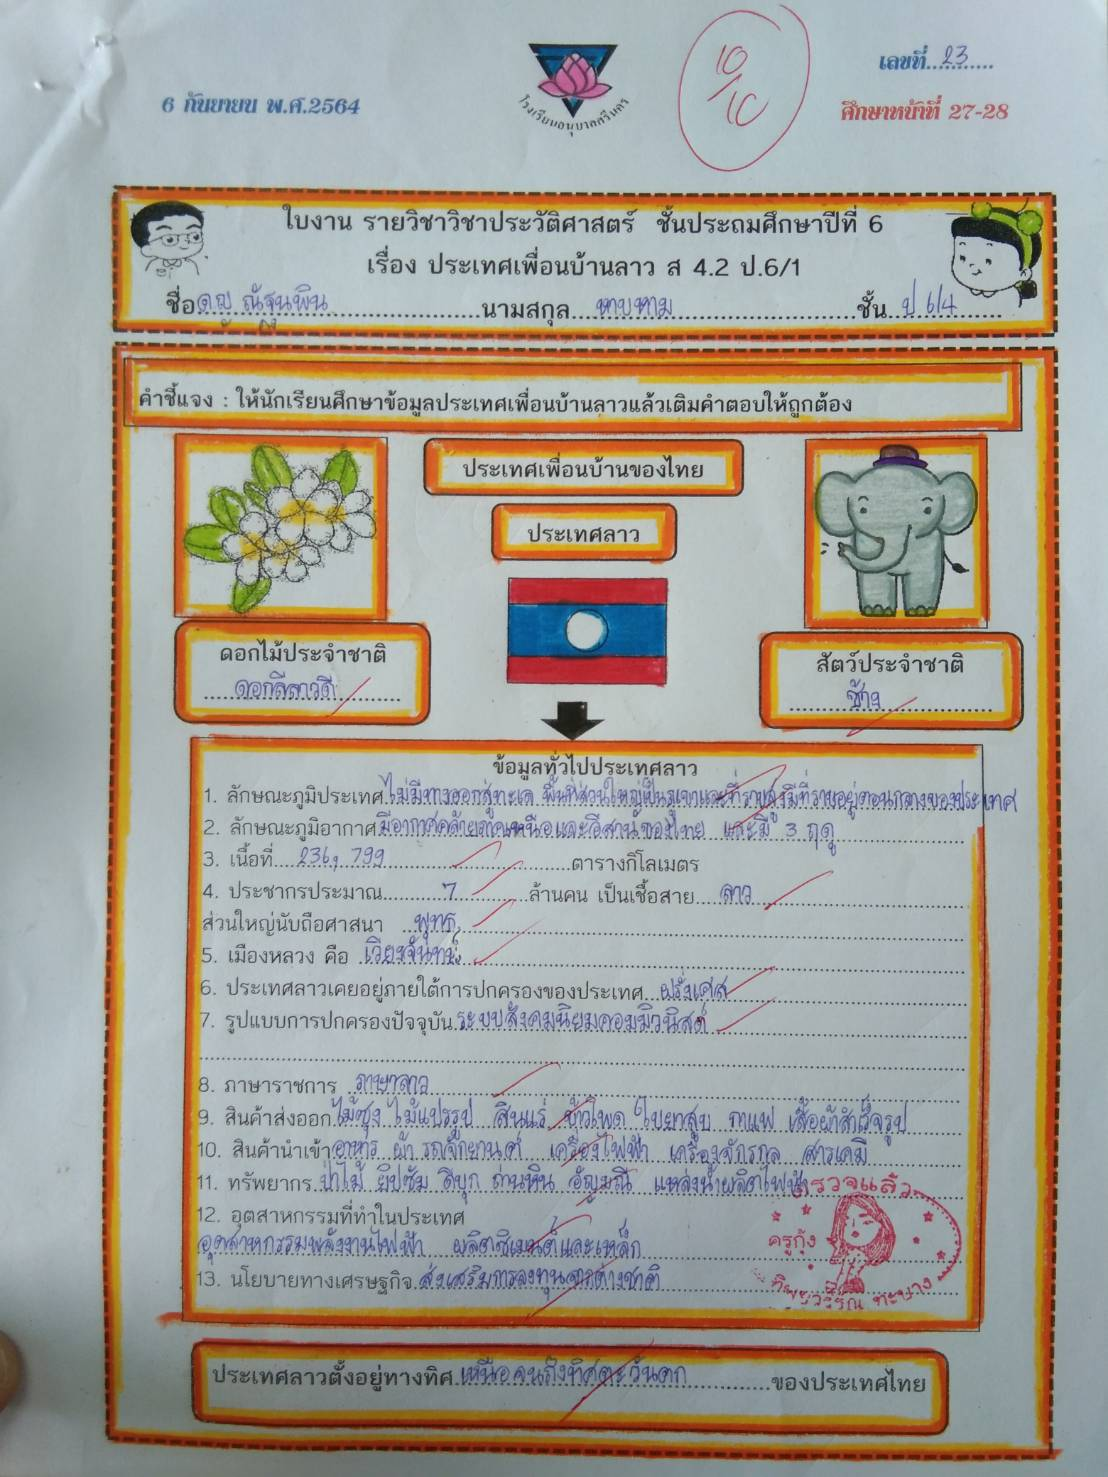 10/10
เลขที่ 23
6 กันยายน พ.ศ.2564
โรงเรียนอนุบาลศรีนคร
ศึกษาหน้าที่ 27-28
ใบงาน รายวิชาวิชาประวัติศาสตร์ ชั้นประถมศึกษาปีที่ 6
เรื่อง ประเทศเพื่อนบ้านลาว ส 4.2 ป.6/1
ชื่อ ด.ญ. ณัฐนพิน นามสกุล ทาบทาม ชั้น ป 6/4
คำชี้แจง : ให้นักเรียนศึกษาข้อมูลประเทศเพื่อนบ้านลาวแล้วเติมคำตอบให้ถูกต้อง
ประเทศเพื่อนบ้านของไทย
ประเทศลาว
ดอกไม้ประจำชาติ
ดอกลีลาวดี
สัตว์ประจำชาติ
ช้าง
ข้อมูลทั่วไปประเทศลาว
1. ลักษณะภูมิประเทศ ไม่มีทางออกสู่ทะเล พื้นที่ส่วนใหญ่เป็นภูเขาและที่ราบสูงมีที่ราบอยู่ตอนกลางของประเทศ
2. ลักษณะภูมิอากาศ มีอากาศคล้ายภาคเหนือและอีสานของไทย และมี 3 ฤดู
3. เนื้อที่ 236,799 ตารางกิโลเมตร
4. ประชากรประมาณ 7 ล้านคน เป็นเชื้อสาย ลาว
ส่วนใหญ่นับถือศาสนา พุทธ
5. เมืองหลวง คือ เวียงจันทน์
6. ประเทศลาวเคยอยู่ภายใต้การปกครองของประเทศ ฝรั่งเศส
7. รูปแบบการปกครองปัจจุบัน ระบบสังคมนิยมคอมมิวนิสต์
8. ภาษาราชการ ภาษาลาว
9. สินค้าส่งออก ไม้ซุง ไม้แปรรูป สินแร่ ข้าวโพด ใบยาสูบ กาแฟ เสื้อผ้าสำเร็จรูป
10. สินค้านำเข้า อาหาร ผ้า รถจักยานต์ เครื่องไฟฟ้า เครื่องจักรกล สารเคมี
11. ทรัพยากร ป่าไม้ ยิปซัม ดีบุก ถ่านหิน อัญมณี แหล่งน้ำผลิตไฟฟ้า
ตรวจแล้ว
12. อุตสาหกรรมที่ทำในประเทศ
ครูกุ้ง
อุตสาหกรรมพลังงานไฟฟ้า ผลิตซิเมนต์และเหล็ก
13. นโยบายทางเศรษฐกิจ ส่งเสริมการลงทุนจากต่างชาติ
ประเทศลาวตั้งอยู่ทางทิศ เหนือจนถึงทิศตะวันตก ของประเทศไทย